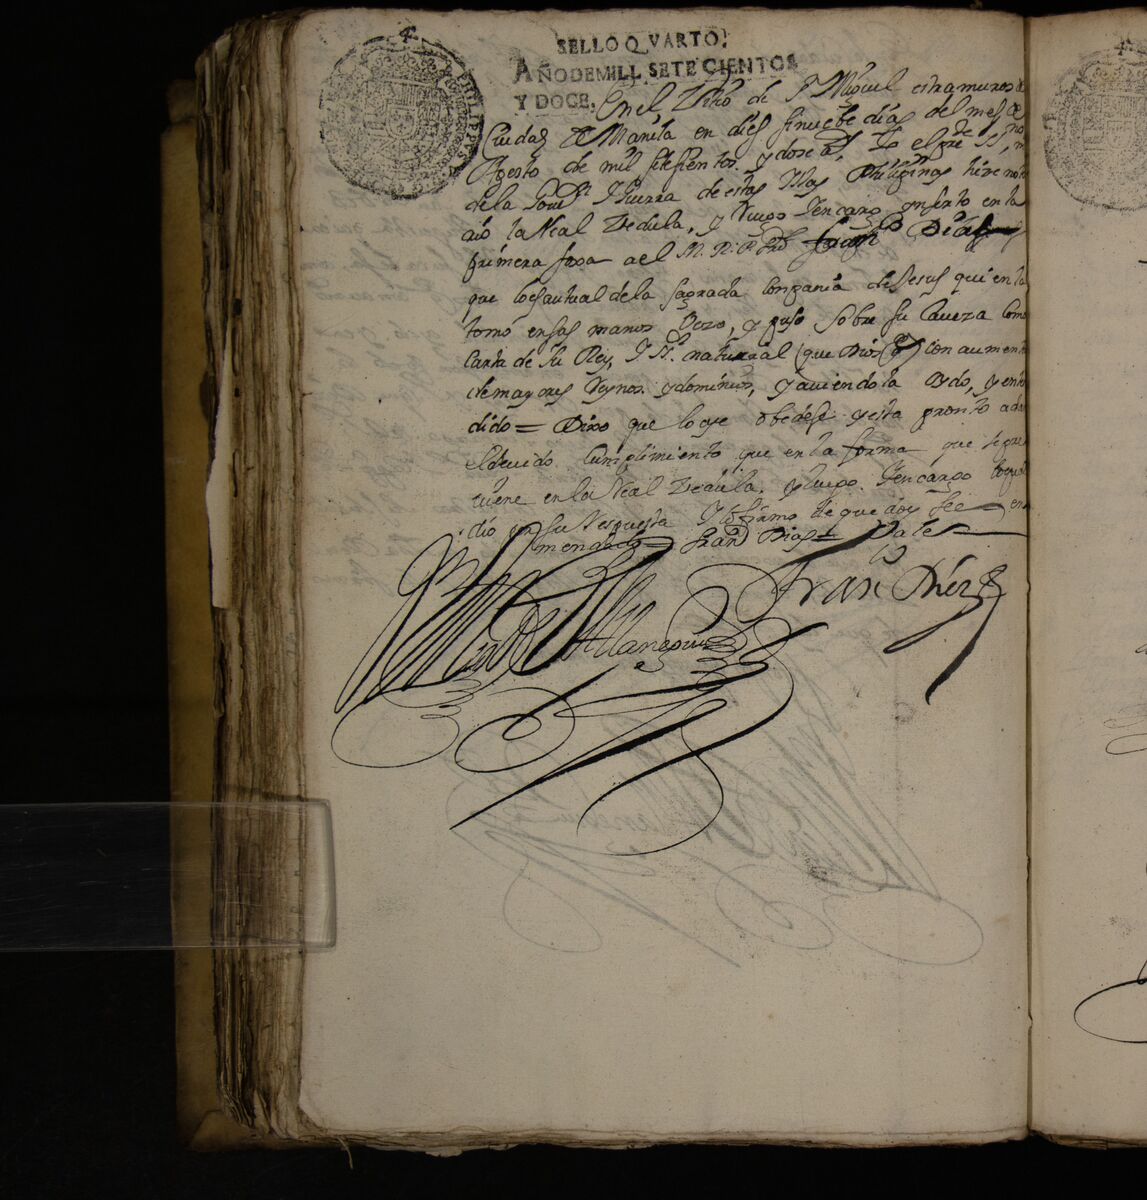 SELLO QVARTO,
AÑO DE MILL, SETECIENTOS
Y DOCE.
En el Sitio de S. Miguel extramuros de
Ciudad de Manila en dies y nuebe dias del mes de
Agosto de mil setesientos y dose a.s Yo el pre.te SS.no m
de la Gov.on y Guerra de estas Yslas Philipinas hise noto
rio la Real Sedula, y Ruego y encargo ynserto en la
primera foxa a el M. R. P. Fran.co Dias
que lo es autual de la sagrada Compania de Jesus quien la
tomó en sas manos vezo, y puso sobre su Caveza como
Carta de su Rey, y S.r natural (que Dios g.e) con aumento
de mayores Reynos y dominios, y aviendola oydo, y enten
dido = Dixo que lo oye obedese y esta pronto a dar
el devido Cumplimiento que en la forma que se pre
viene en la Real Zedula, y luego y encargo
dio en su Respuesta y lo firmo de que doy fee en
mendado = Fran.co Dias = Vale
Fran.co Diez